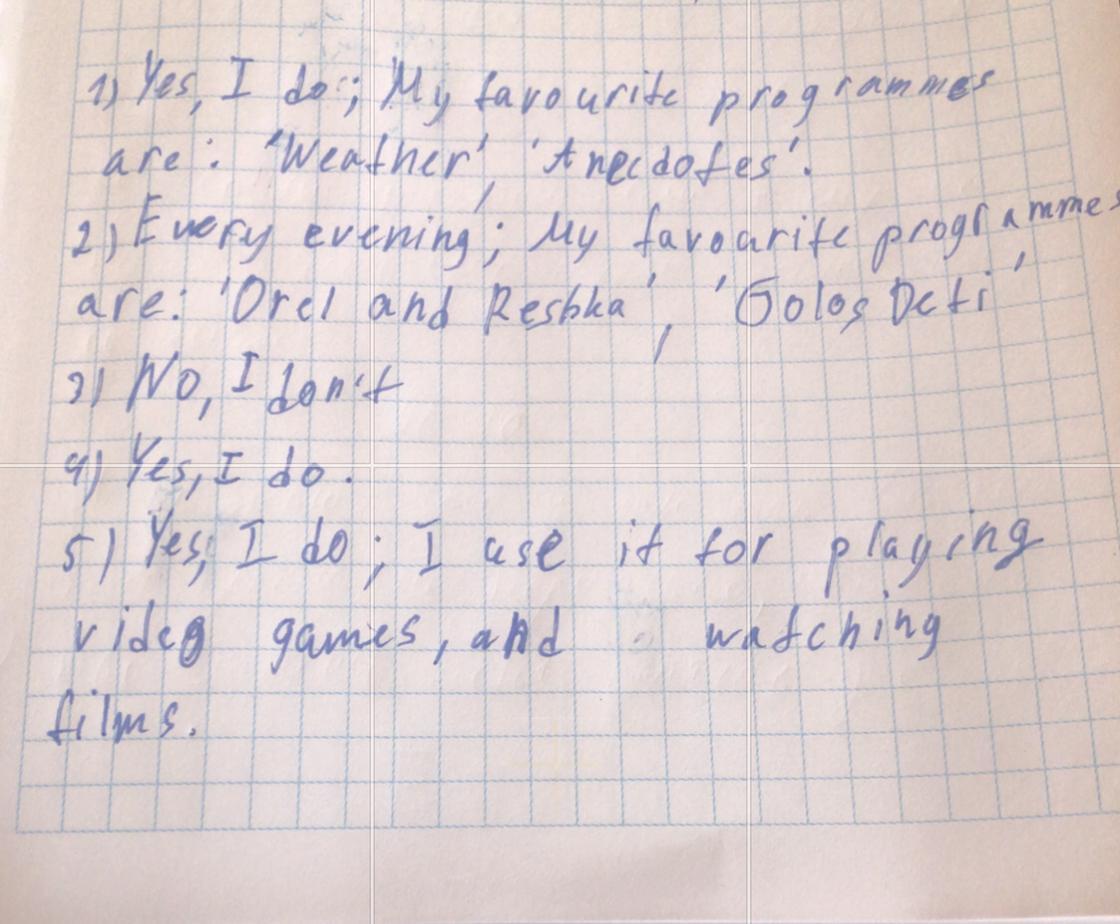 1) Yes, I do; My favourite programmes
are: 'Weather', 'Anecdotes'.
2) Every evening; My favourite programmes
are: 'Orel and Reshka', 'Golos Deti'
3) No, I don't
4) Yes, I do.
5) Yes, I do; I use it for playing
video games, and watching
films.